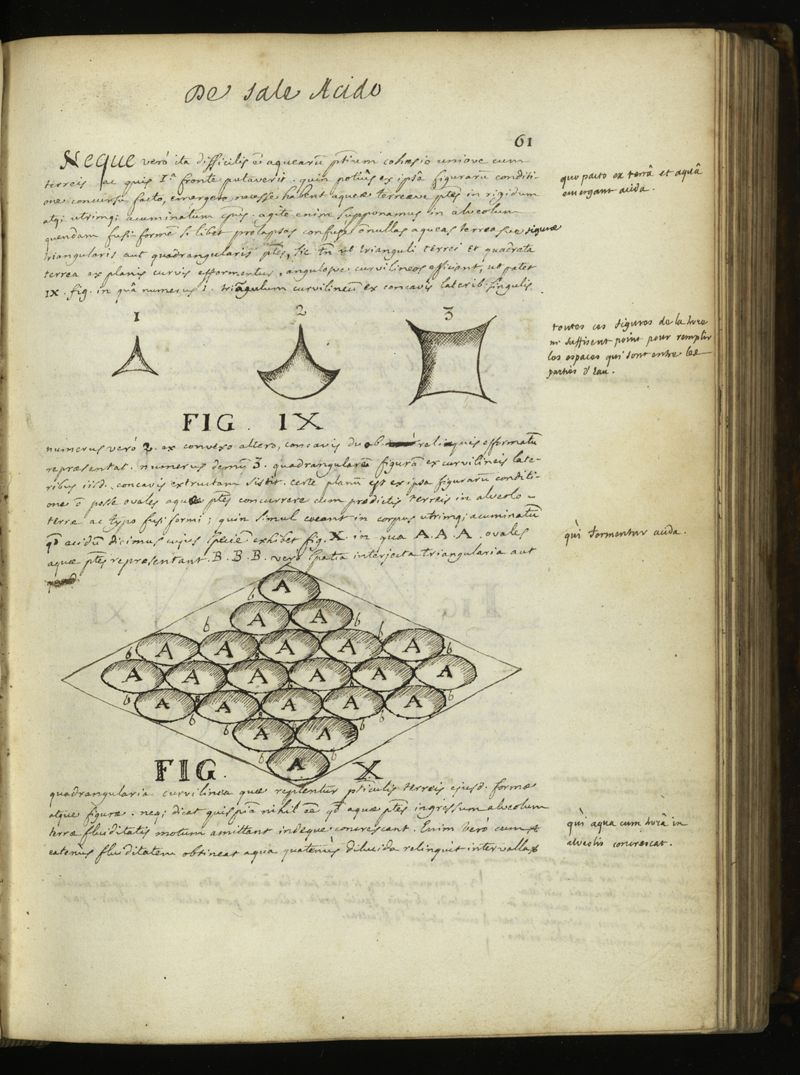 De Sale Acido
61
Neque verò ita difficilis ē aquearū ptium cohæsio unione cum
terreis ac quis Iᵃ fronte putaverit. quin potiùs ex ipsâ figurarū conditi-
one concursu facto, emergere necesse habent aqueæ terreæve ptes in rigidum
atqȝ utrimqȝ acuminatum agite enim supponamus in alveolum
quendam fusi formē si libet prolapsas aqueas terreasve figuræ
triangularis aut quadrangularis ptes, sic tn̄ ut trianguli terrei et quadrata
terrea ex planis curvis efformentur, angulosve curvilineos efficiant, ut patet
IX. fig. in quâ numerus I. triāgulum curvilineū ex concavis laterib. singulis
quo pacto ex terrâ et aquâ
emergant acida.
1 2 3
toutes ces figures de la terre
ne suffisent point pour remplir
les espaces qui sont entre les
parties d'eau.
FIG. IX
numerus verò 2. ex convexo altero, concavis duob. reliquis efformatū
repræsentat. numerus demū 3. quadrangularē figurā ex curvilineis late-
ribus iisd. concavis extructam sistit. certe planū est ex ipsa figurarū conditi-
one ē posse ovales aquæ ptes concurrere cum prædictis terreis in alveolo
terræ ac typo fusi formi; quin simul coeant in corpus utrimqȝ acuminatū
qd acidū dicimus cujus speciē exhibet fig. X. in qua A. A. A. ovales
aquæ ptes repræsentant. B. B. B. verò spatia interjecta triangularia aut
qui formentur acida.
A
b A A b
b A A A A A b
A A A A A A
b A A A A A b
b A A b
A
FIG. X
quadrangularia curvilinea quæ replentur pticulis terreis ejusd. formæ
atque figuræ. neqȝ dicat quispiā nihil eē qd aquæ ptes ingressum alveolum
terræ fluiditatis motum amittant indeque concrescant. Enim verò cum
eatenùs fluiditatem obtineat aqua quatenùs diluida relinquit intervalla
qui aqua cum terrâ in
alveolis concrescat.